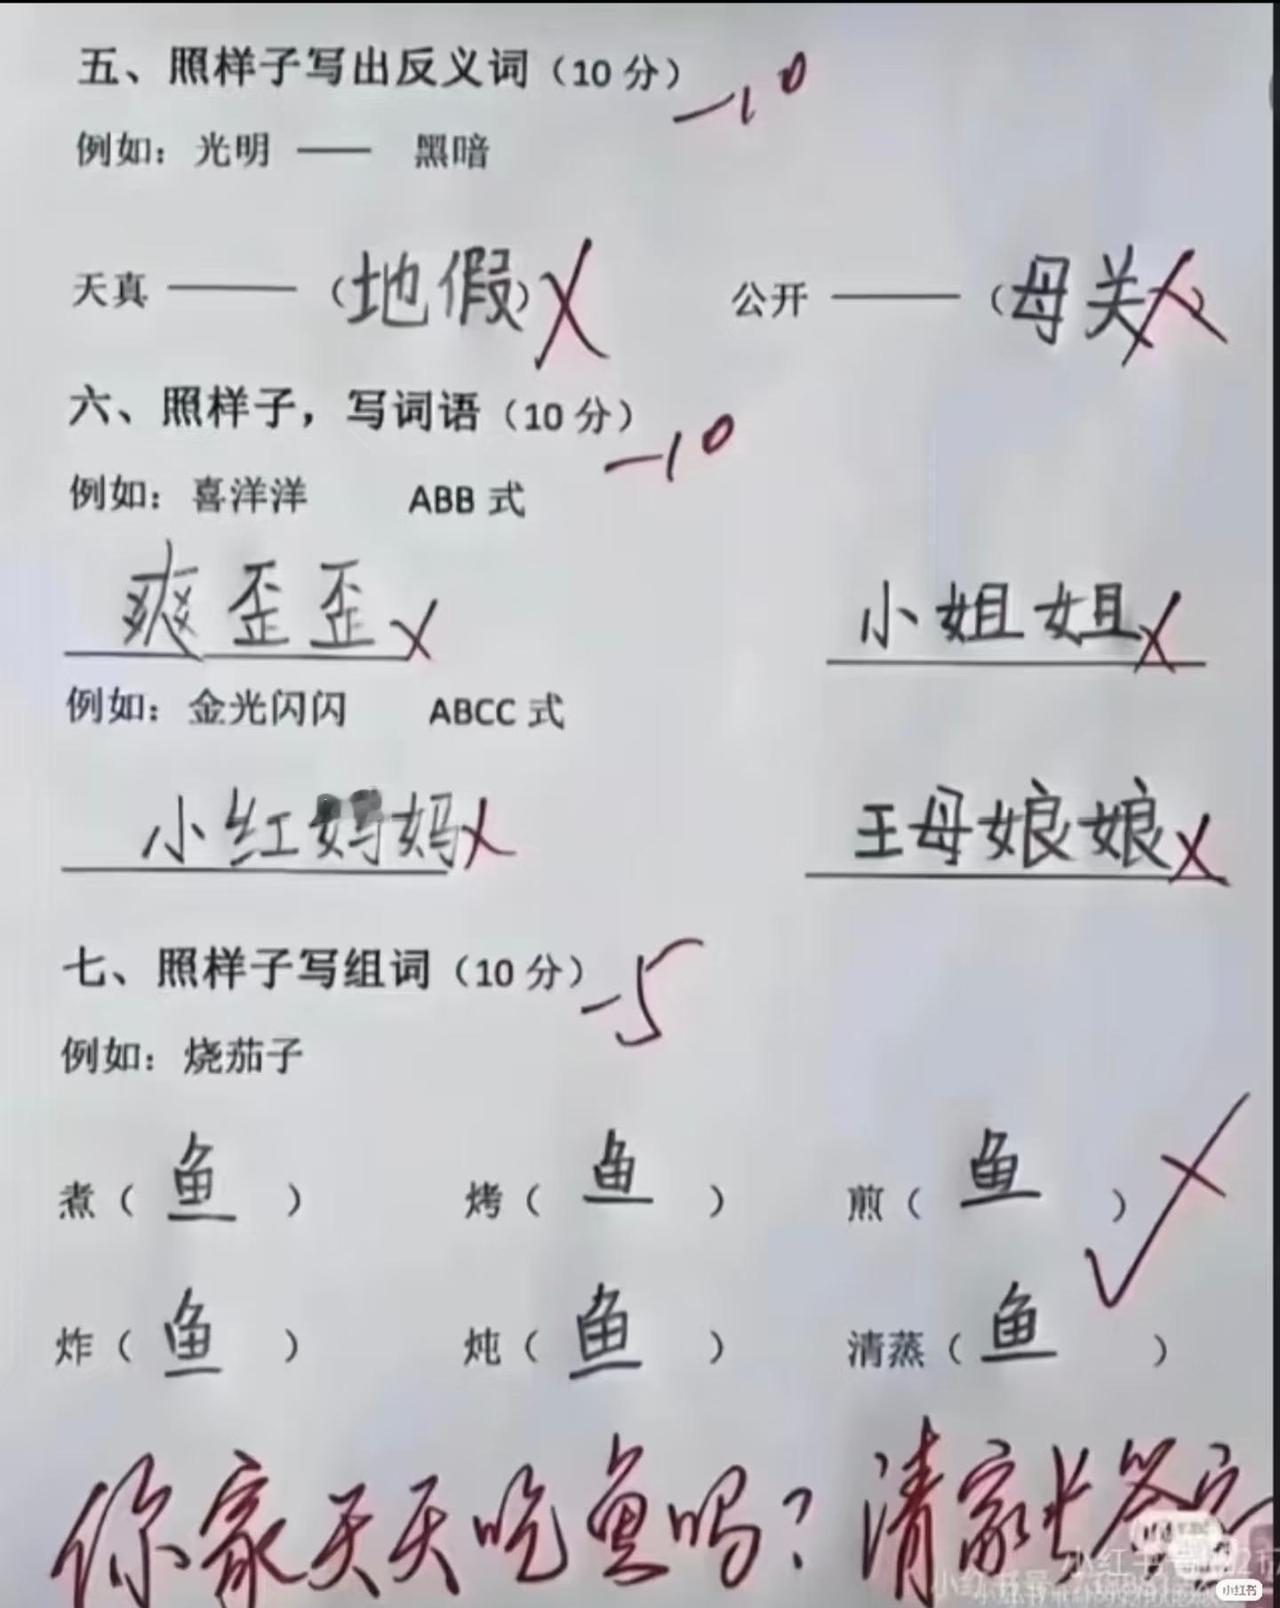 五、照样子写出反义词（10 分） -10
例如：光明 —— 黑暗
天真 ——（地假） 公开 ——（母关）
六、照样子，写词语（10 分） -10
例如：喜洋洋 ABB 式
爽歪歪 小姐姐
例如：金光闪闪 ABCC 式
小红妈妈 王母娘娘
七、照样子写组词（10 分） -5
例如：烧茄子
煮（鱼） 烤（鱼） 煎（鱼）
炸（鱼） 炖（鱼） 清蒸（鱼）
你家天天吃鱼吗？清家长签字
小红书